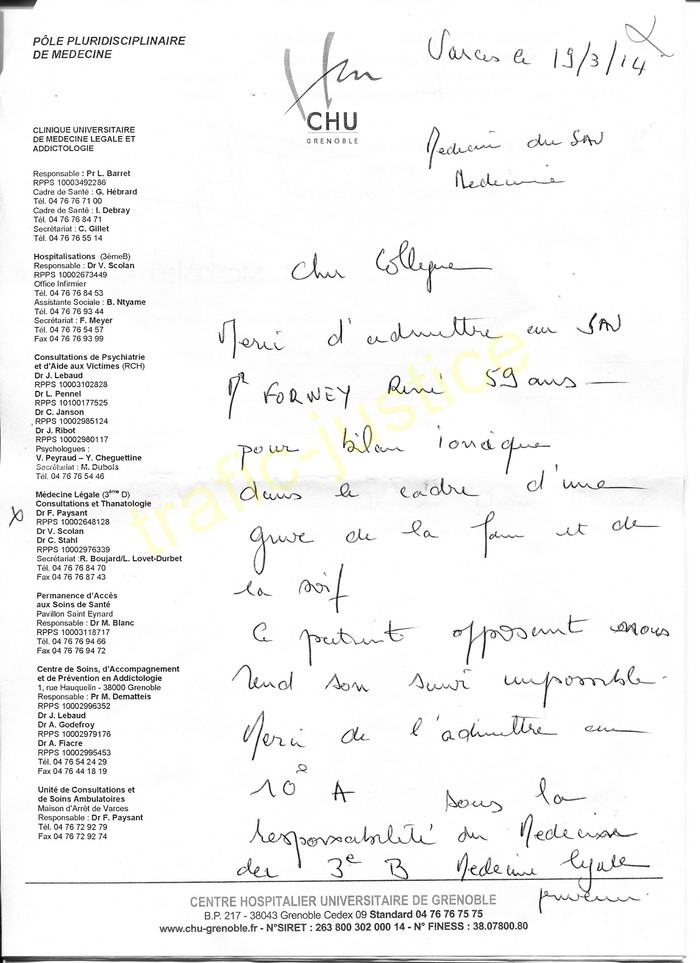 PÔLE PLURIDISCIPLINAIRE
DE MEDECINE
CHU
GRENOBLE
Varces le 19/3/14
Medecin du SAU
Medecine
CLINIQUE UNIVERSITAIRE
DE MEDECINE LEGALE ET
ADDICTOLOGIE
Responsable : Pr L. Barret
RPPS 10003492286
Cadre de Santé : G. Hébrard
Tél. 04 76 76 71 00
Cadre de Santé : I. Debray
Tél. 04 76 76 84 71
Secrétariat : C. Gillet
Tél. 04 76 76 55 14
Hospitalisations (3èmeB)
Responsable : Dr V. Scolan
RPPS 10002673449
Office Infirmier
Tél. 04 76 76 84 53
Assistante Sociale : B. Ntyame
Tél. 04 76 76 93 44
Secrétariat : F. Meyer
Tél. 04 76 76 54 57
Fax 04 76 76 93 99
Consultations de Psychiatrie
et d'Aide aux Victimes (RCH)
Dr J. Lebaud
RPPS 10003102828
Dr L. Pennel
RPPS 10100177525
Dr C. Janson
RPPS 10002985124
Dr J. Ribot
RPPS 10002980117
Psychologues :
V. Peyraud – Y. Cheguettine
Secrétariat : M. Dubois
Tél. 04 76 76 54 46
Médecine Légale (3ème D)
Consultations et Thanatologie
Dr F. Paysant
RPPS 10002648128
Dr V. Scolan
Dr C. Stahl
RPPS 10002976339
Secrétariat :R. Boujard/L. Lovet-Durbet
Tél. 04 76 76 84 70
Fax 04 76 76 87 43
Permanence d'Accès
aux Soins de Santé
Pavillon Saint Eynard
Responsable : Dr M. Blanc
RPPS 10003118717
Tél. 04 76 76 94 66
Fax 04 76 76 94 72
Centre de Soins, d'Accompagnement
et de Prévention en Addictologie
1, rue Hauquelin - 38000 Grenoble
Responsable : Pr M. Dematteis
RPPS 10002996352
Dr J. Lebaud
Dr A. Godefroy
RPPS 10002979176
Dr A. Fiacre
RPPS 10002995453
Tél. 04 76 54 24 29
Fax 04 76 44 18 19
Unité de Consultations et
de Soins Ambulatoires
Maison d'Arrêt de Varces
Responsable : Dr F. Paysant
Tél. 04 76 72 92 79
Fax 04 76 72 92 74
Cher Collegue
Merci d'admettre au SAU
Mr FORNEY René 59 ans —
pour bilan ionique
dans le cadre d'une
greve de la faim et de
la soif
Ce patient opposant
rend son suivi impossible.
Merci de l'admettre en
10e A sous la
responsabilité du Medecin
des 3e B Medecine legale
trafic-justice
CENTRE HOSPITALIER UNIVERSITAIRE DE GRENOBLE
B.P. 217 - 38043 Grenoble Cedex 09 Standard 04 76 76 75 75
www.chu-grenoble.fr - N°SIRET : 263 800 302 000 14 - N° FINESS : 38.07800.80